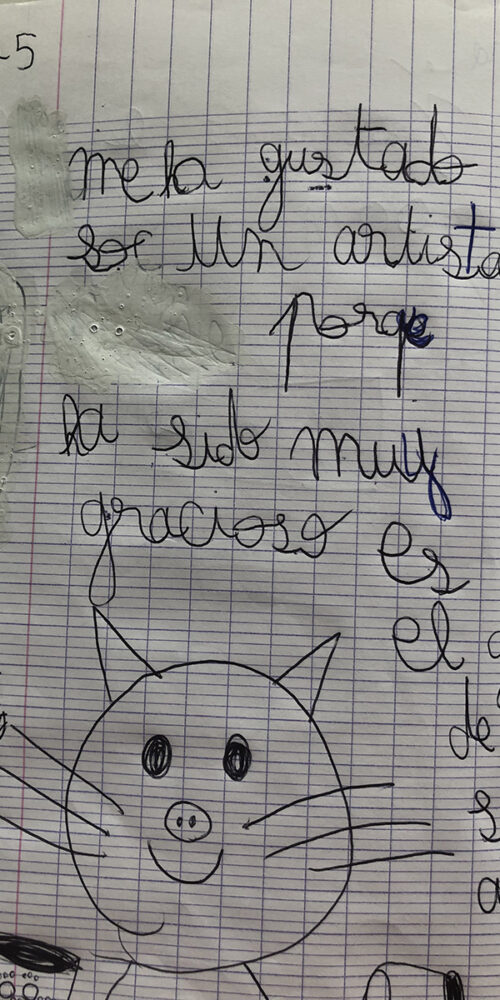 -5
me ha gustado
ser un artista
porqe
ha sido muy
gracioso es
el
de
s
a